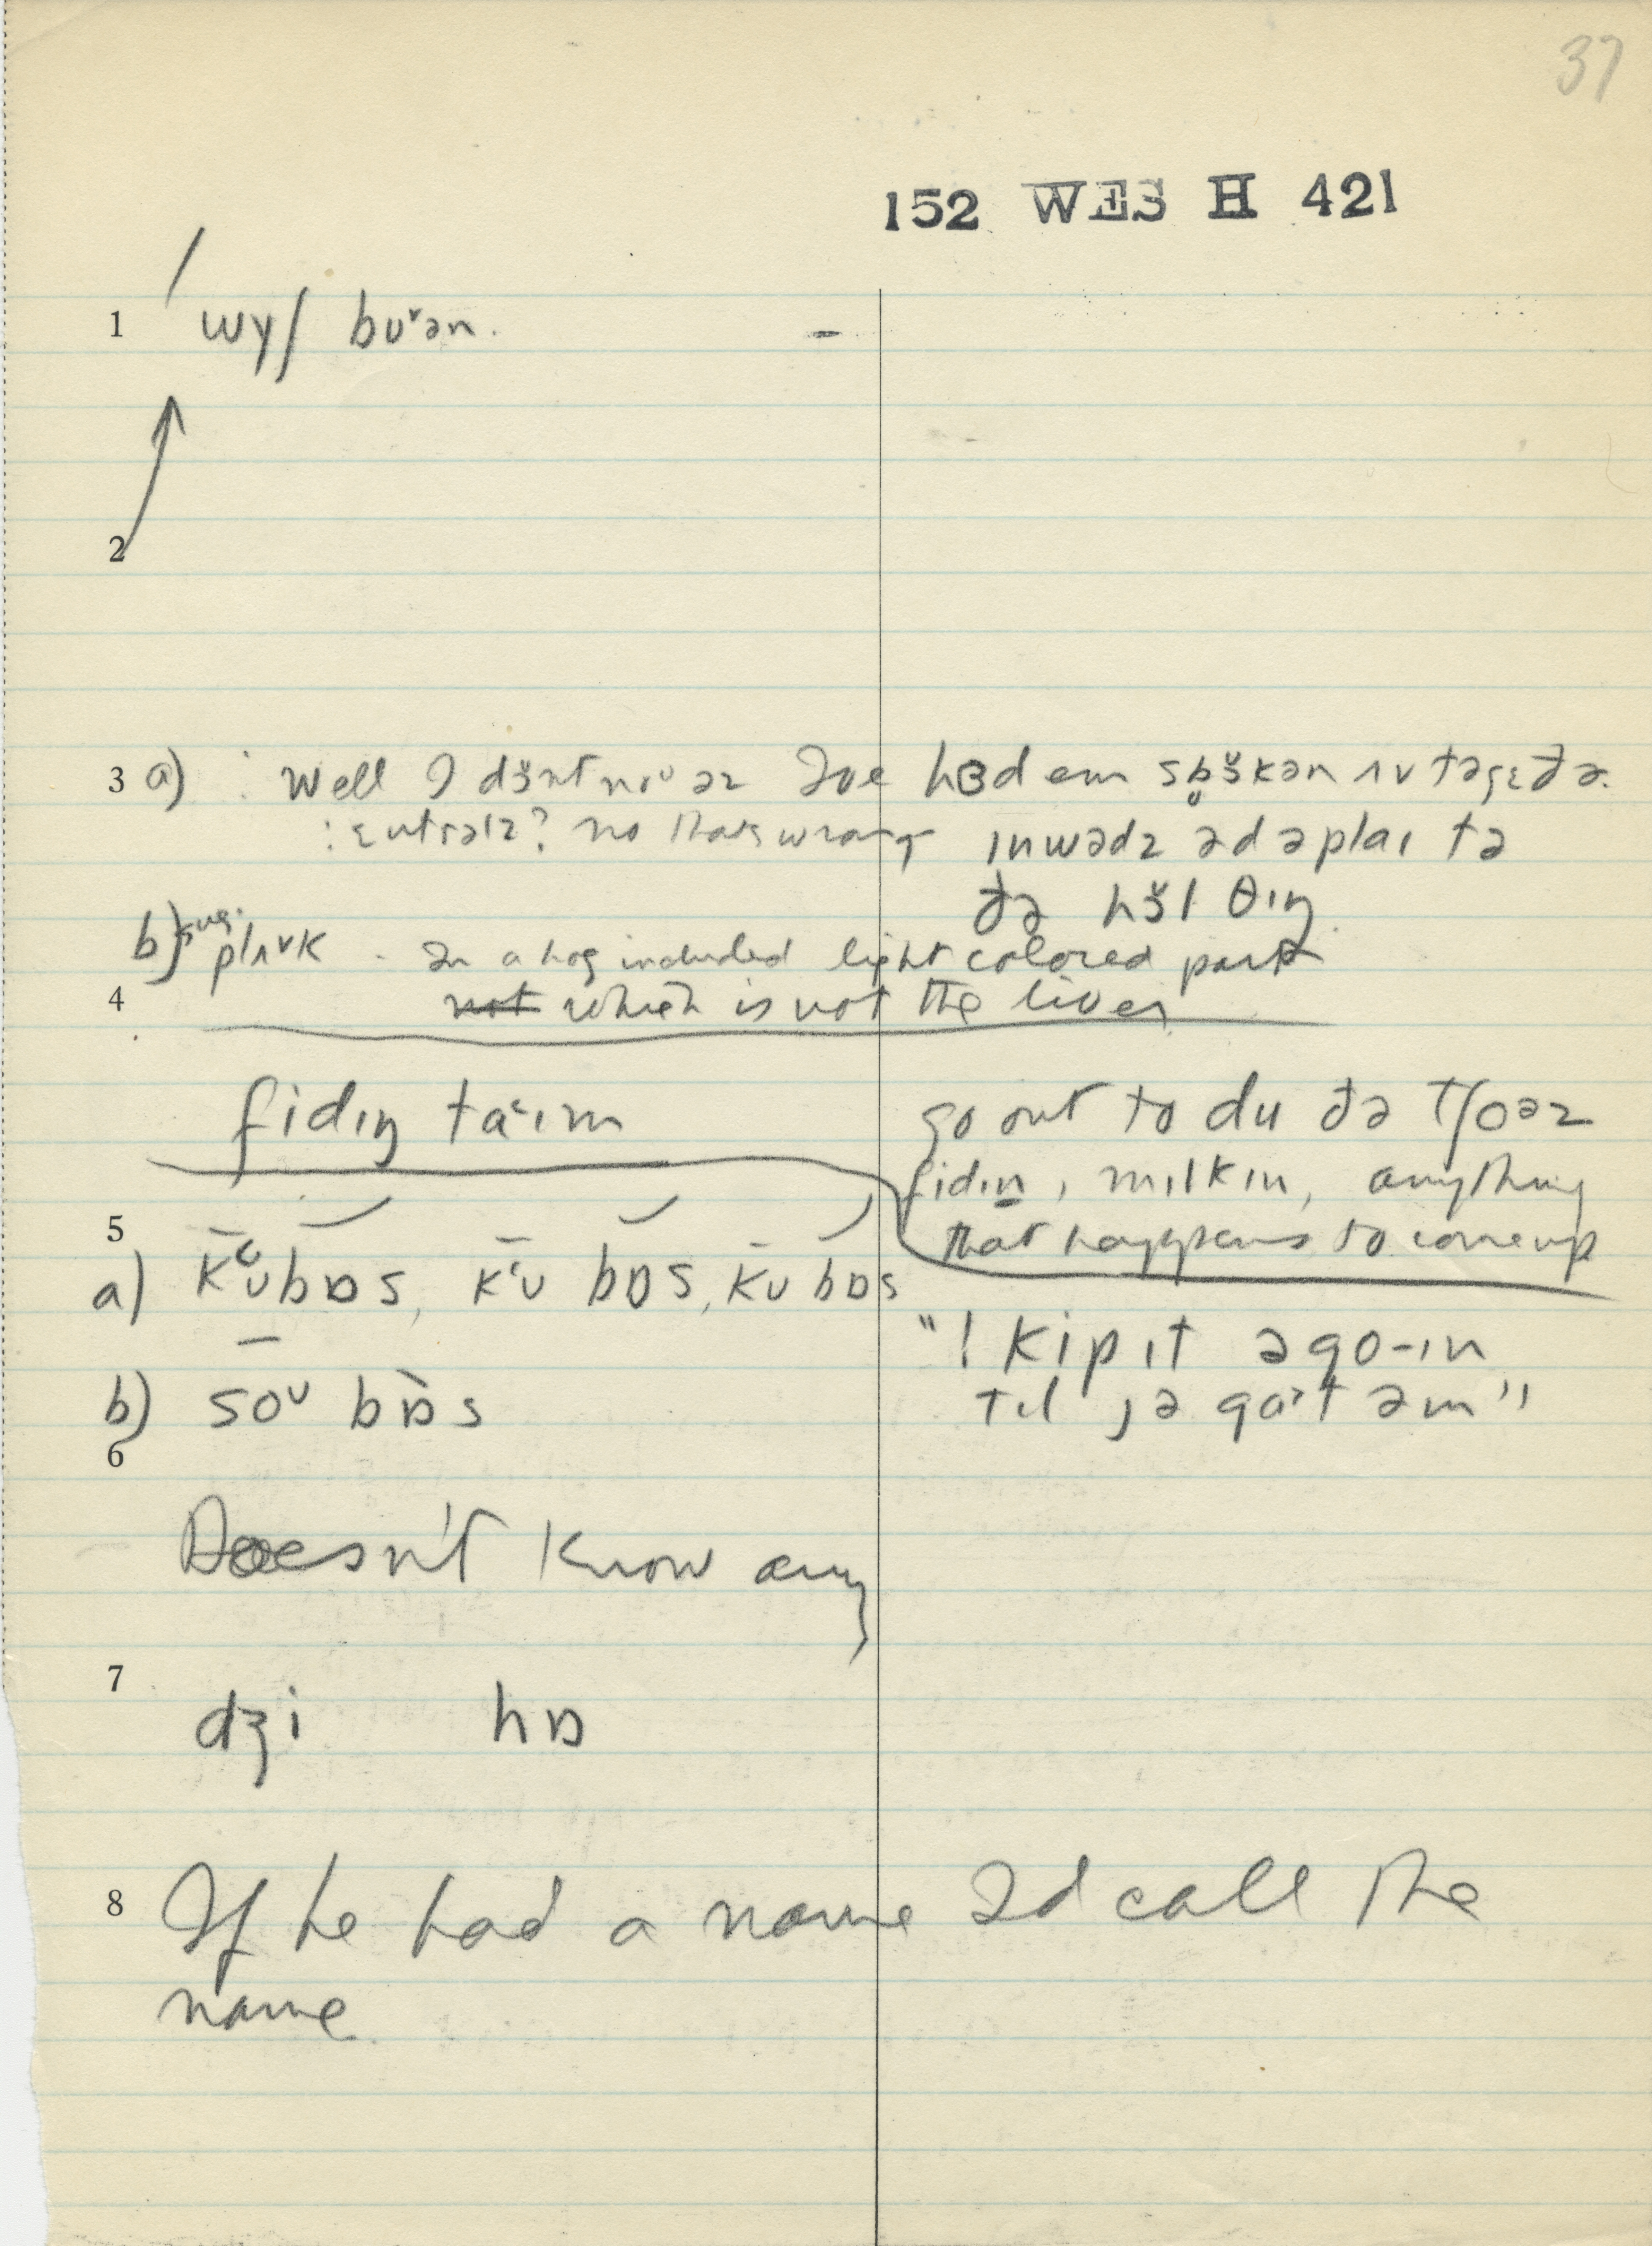 37
152 WES H 421
1 wɣʃ bʊ˅ən.
2
3 a) : Well I dɜ̆nt noᵘ əz I've hɜd em spɜ̆kən ʌv təgɛðə.
: ɛntrəlz? no that's wrong
ɪnwədz əd əplaɪ tə
ðə hɜ̆l θɪŋ.
b) sug. plʌ˅k - In a hog included light colored part
4 not which is not the liver
fidɪŋ ta˂ɪm
go out to du ðə tʃoəz
fidɪn, mɪlkɪn, anything
that happens to come up
5
a) k˂ʊbɒs, k˂ʊ bɒs, kʊ bɒs
"I kip ɪt əgo-ɪn
tɪl jə ga˃t əm"
b) soᵘ bɒs
6
Doesn't know any
7
dʒi hɒ
8 If he had a name I'd call the
name